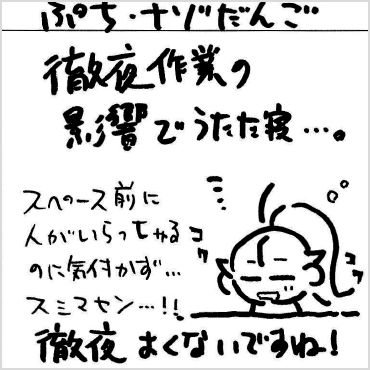 ぷち・ナゾだんご
徹夜作業の
影響でうたた寝…。
スペース前に
人がいらっちゃる
のに気付かず…
スミマセン…!!
コク
コク
徹夜よくないですね!